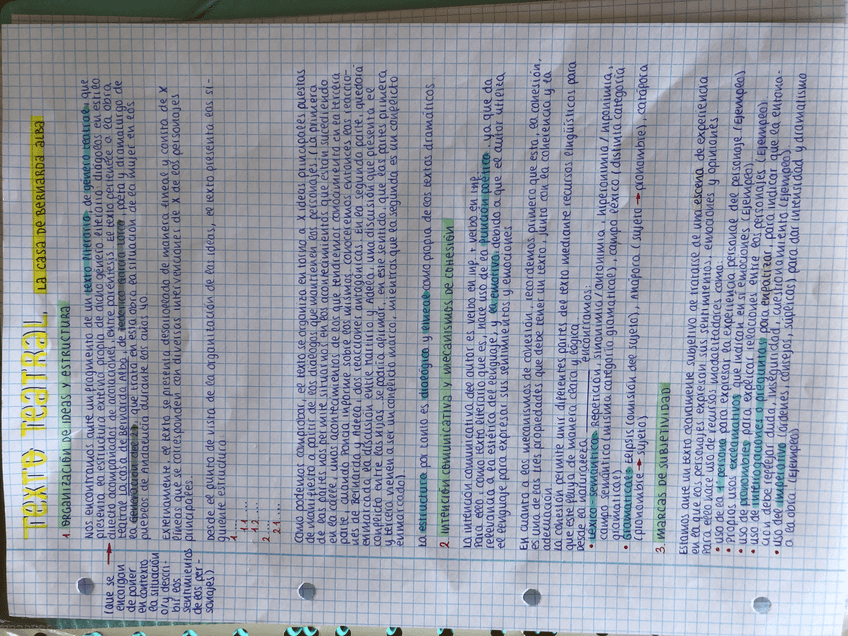 TEXTO TEATRAL. LA CASA DE BERNARDA ALBA
1. ORGANIZACIÓN DE IDEAS Y ESTRUCTURA
Nos encontramos ante un fragmento de un texto literario, de género teatral, que
presenta la estructura externa propia de dicho género literario: diálogos en estilo
directo acompañados de acotaciones entre paréntesis. El texto pertenece a la obra
teatral La casa de Bernarda Alba, de Federico García Lorca, poeta y dramaturgo de
la Generación del 27, que trata en esta obra la situación de la mujer en los
pueblos de Andalucía durante los años 40.
(que se
encargan
de poner
en contexto
la situación
o/y descri-
bir los
sentimientos
de los per-
sonajes)
Externamente, el texto se presenta desarrollado de manera lineal y consta de X
líneas que se corresponden con diversas intervenciones de X de los personajes
principales.
Desde el punto de vista de la organización de las ideas, el texto presenta las si-
guiente estructura
1. ...
1.1. ...
1.2. ...
2. ...
2.1. ...
Como podemos comprobar, el texto se organiza en torno a X ideas principales puestas
de manifiesto a partir de los diálogos que mantienen los personajes. (La primera
de las partes nos permite conocer los acontecimientos que están sucediendo
en la calle, unos acontecimientos de los que tendremos conocimiento en la tercera
parte, cuando Poncia informe sobre los mismos. Conocemos entonces las reaccio-
nes de Bernarda y Adela, dos reacciones antagónicas. En la segunda parte, quedará
enmarcada la discusión entre Martirio y Adela, una discusión que presenta el
conflicto entre las hijas. Se podría afirmar, en este sentido, que las partes primera
y tercera vienen a ser un conflicto marco, mientras que la segunda es un conflicto
enmarcado)
La estructura por tanto es dialógica y lineal como propia de los textos dramáticos
2. INTENCIÓN COMUNICATIVA Y MECANISMOS DE COHESIÓN
La intención comunicativa del autor es, verbo en inf., verbo en inf., verbo en inf.
Para ello, como texto literario que es, hace uso de la función poética, ya que da
relevancia a la estética del lenguaje, y la emotiva debido a que el autor utiliza
el lenguaje para expresar sus sentimientos y emociones
En cuanto a los mecanismos de cohesión, recordemos primero que esta, la cohesión,
es una de las tres propiedades que debe tener un texto, junto con la coherencia y la
adecuación.
La cohesión permite unir diferentes partes del texto mediante recursos lingüísticos para
que este fluya de manera clara y lógica
Desde la naturaleza encontramos:
• Léxico-semántica: Repetición, sinonimia/antonimia, hiperonimia/hiponimia,
campo semántico (misma categoría gramatical), campo léxico (distinta categoría
• Gramatical: Elipsis (omisión del sujeto), anáfora (sujeto → pronombre), catáfora
(pronombre → sujeto)
3. MARCAS DE SUBJETIVIDAD
Estamos ante un texto claramente subjetivo al tratarse de una escena de experiencia
en la que los personajes expresan sus sentimientos, emociones y opiniones
Para ello hace uso de recursos modalizadores como:
• uso de la 1ª persona para expresar la experiencia personal del personaje (Ejemplo)
• Propios usos exclamativos que indican en sí emociones (Ejemplo)
• uso de pronombres para explicar relaciones entre los personajes (Ejemplo)
• uso de interrogaciones o preguntas para empatizar, para indicar que la entona-
ción debe reflejar duda, inseguridad, cuestionamiento (Ejemplo).
• uso del imperativo (órdenes, consejos, súplicas), para dar intensidad y dramatismo
a la obra. (Ejemplo)